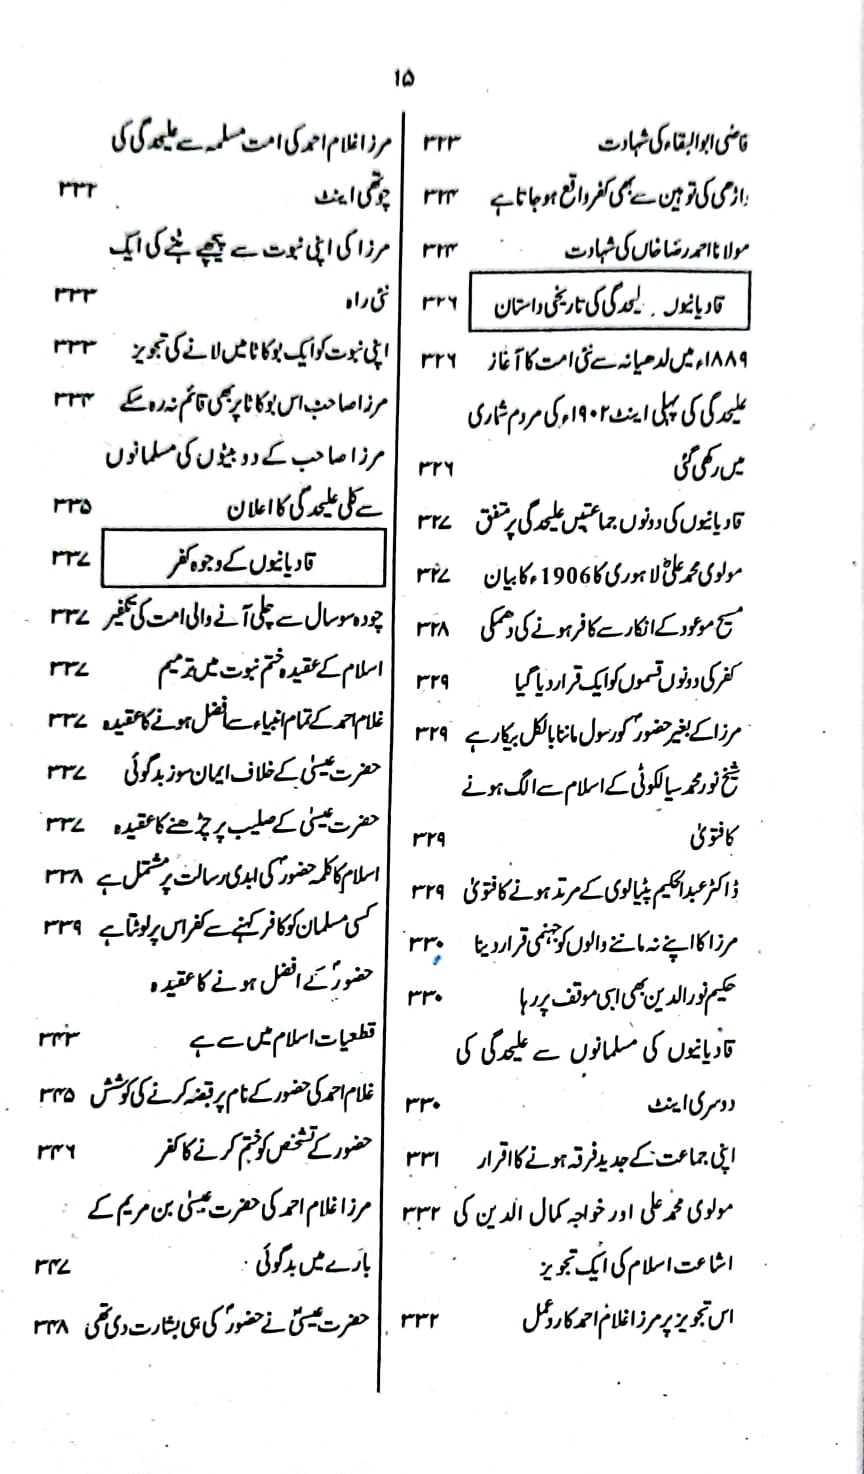 ۱۵
قاضی ابوالبقاء کی شہادت ۳۲۳
داڑھی کی توہین سے بھی کفر واقع ہو جاتا ہے ۳۲۴
مولانا احمد رضا خاں کی شہادت ۳۲۴
قادیانیوں . علیحدگی کی تاریخی داستان ۳۲۶
۱۸۸۹ء میں لدھیانہ سے نئی امت کا آغاز ۳۲۶
علیحدگی کی پہلی اینٹ ۱۹۰۲ء کی مردم شماری
میں رکھی گئی ۳۲۶
قادیانیوں کی دونوں جماعتیں علیحدگی پر متفق ۳۲۷
مولوی محمد علی لاہوری کا 1906ء کا بیان ۳۲۷
مسیح موعود کے انکار سے کافر ہونے کی دھمکی ۳۲۸
کفر کی دونوں قسموں کو ایک قرار دیا گیا ۳۲۹
مرزا کے بغیر حضورؐ کو رسول ماننا بالکل بیکار ہے ۳۲۹
شیخ نور محمد سیالکوٹی کے اسلام سے الگ ہونے
کا فتویٰ ۳۲۹
ڈاکٹر عبدالحکیم پٹیالوی کے مرتد ہونے کا فتویٰ ۳۲۹
مرزا کا اپنے نہ ماننے والوں کو جہنمی قرار دینا ۳۳۰
حکیم نور الدین بھی اسی موقف پر رہا ۳۳۰
قادیانیوں کی مسلمانوں سے علیحدگی کی
دوسری اینٹ ۳۳۰
اپنی جماعت کے جدید فرقہ ہونے کا اقرار ۳۳۱
مولوی محمد علی اور خواجہ کمال الدین کی ۳۳۲
اشاعت اسلام کی ایک تجویز
اس تجویز پر مرزا غلام احمد کا ردعمل ۳۳۲
مرزا غلام احمد کی امت مسلمہ سے علیحدگی کی
چوتھی اینٹ ۳۳۲
مرزا کی اپنی نبوت سے پیچھے ہٹنے کی ایک
نئی راہ ۳۳۳
اپنی نبوت کو ایک ہو کاٹا میں لانے کی تجویز ۳۳۳
مرزا صاحب اس ہو کاٹا پر بھی قائم نہ رہ سکے ۳۳۴
مرزا صاحب کے دو بیٹوں کی مسلمانوں
سے کلی علیحدگی کا اعلان ۳۳۵
قادیانیوں کے وجوہ کفر ۳۳۷
چودہ سو سال سے چلی آنے والی امت کی تکفیر ۳۳۷
اسلام کے عقیدہ ختم نبوت میں ترمیم ۳۳۷
غلام احمد کے تمام انبیاء سے افضل ہونے کا عقیدہ ۳۳۷
حضرت عیسیٰ کے خلاف ایمان سوز بدگوئی ۳۳۷
حضرت عیسیٰ کے صلیب پر چڑھنے کا عقیدہ ۳۳۷
اسلام کا کلمہ حضورؐ کی ابدی رسالت پر مشتمل ہے ۳۳۸
کسی مسلمان کو کافر کہنے سے کفر اس پر لوٹتا ہے ۳۳۹
حضورؐ کے افضل ہونے کا عقیدہ
قطعیات اسلام میں سے ہے ۳۴۳
غلام احمد کی حضور کے نام پر قبضہ کرنے کی کوشش ۳۴۵
حضور کے تشخص کو ختم کرنے کا کفر ۳۴۶
مرزا غلام احمد کی حضرت عیسیٰ بن مریم کے
بارے میں بدگوئی ۳۴۷
حضرت عیسیٰؑ نے حضورؐ کی ہی بشارت دی تھی ۳۴۸